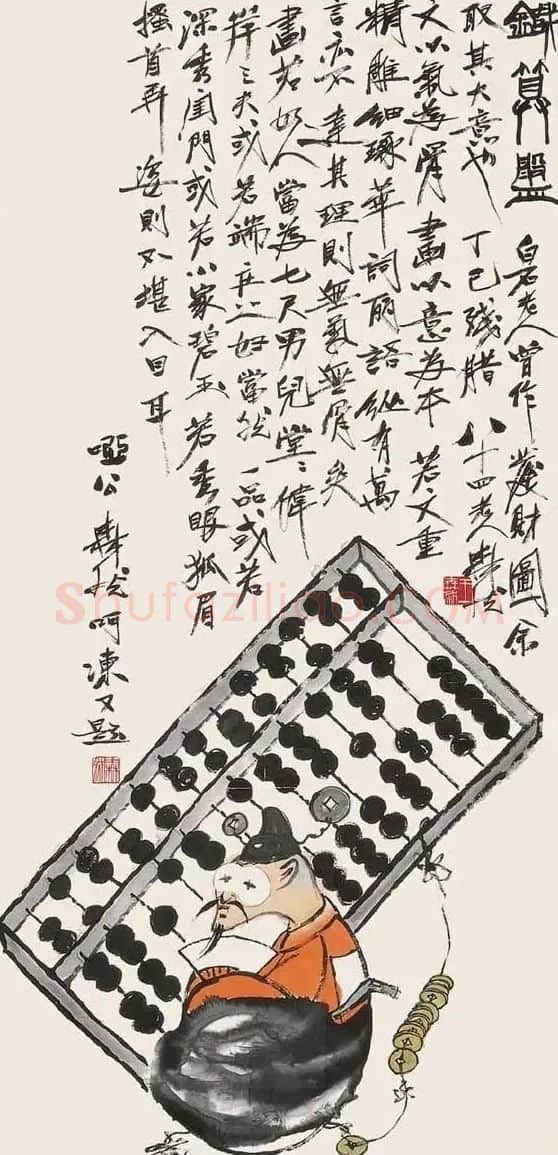 鐵算盤 白石老人曾作發財圖余
取其大意也 丁巳殘腊 八十四老人
文以氣為骨畫以意為本若文重
精雕細琢華詞丽語縱有萬
言亦不達其理則無氣無骨矣
畫若如人當為七尺男兒堂〻偉
岸之夫或若端庄之好當然一品或若
深秀閨門或若小家碧玉若秀眼狐眉
搔首弄姿則不堪入目耳
呵凍又題
Shufaziliao.COM